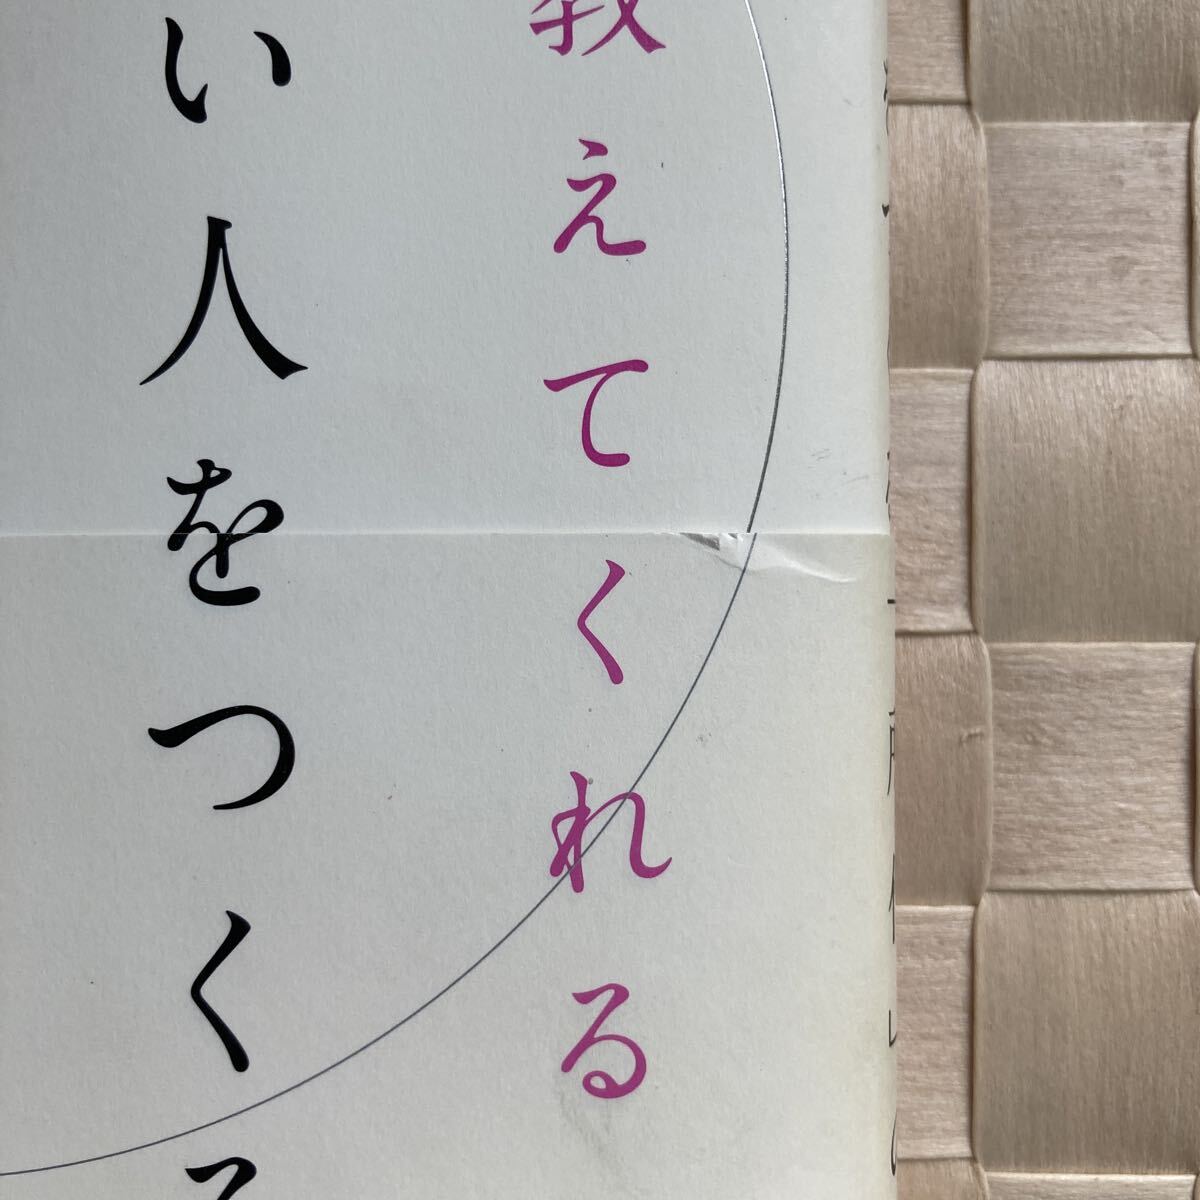 教えてくれる
い人をつくる